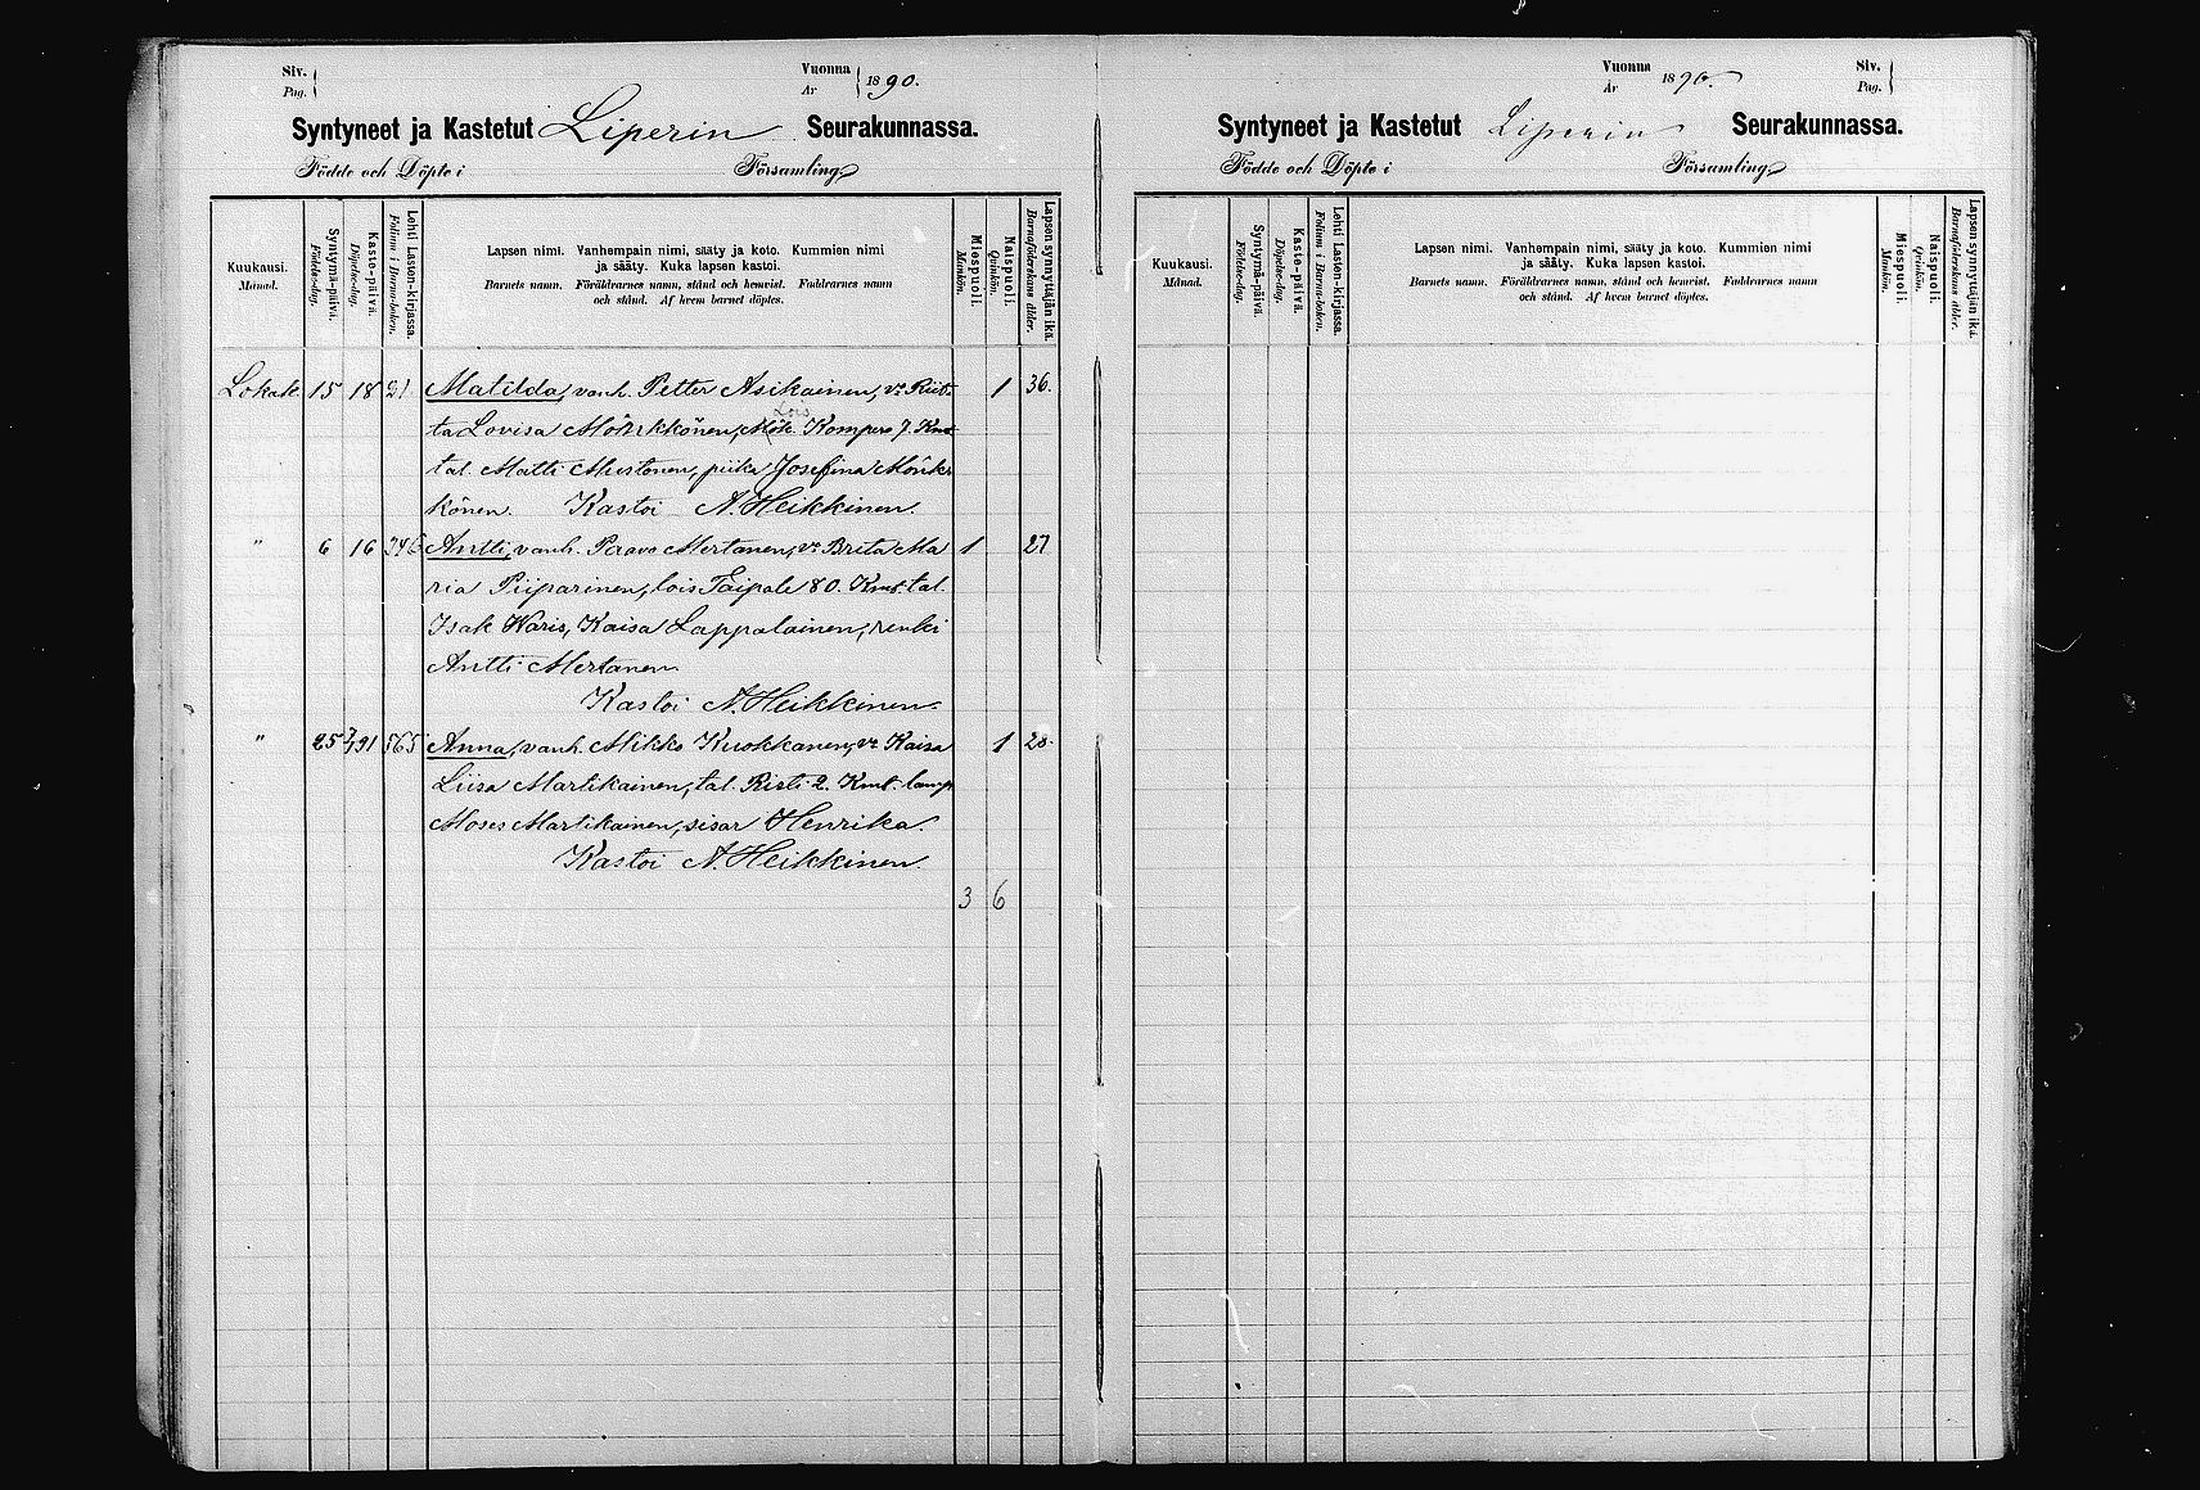 Siv.
Pag.
Vuonna
År
1890.
Syntyneet ja Kastetut Liperin Seurakunnassa.
Födde och Döpte i Församling
Kuukausi.
Månad.
Syntymä-päivä.
Födelse-dag.
Kaste-päivä.
Döpelse-dag.
Lehti Lasten-kirjassa.
Folium i Barna-boken.
Lapsen nimi. Vanhempain nimi, sääty ja koto. Kummien nimi
ja sääty. Kuka lapsen kastoi.
Barnets namn. Föräldrarnes namn, stånd och hemvist. Faddrarnes namn
och stånd. Af hvem barnet döptes.
Miespuoli.
Mankön.
Naispuoli.
Qvinkön.
Lapsen synnyttäjän ikä.
Barnaföderskans ålder.
Lokak. 15 18 21 Matilda, vanh. Petter Asikainen, vo Riit- 1 36.
Lois
ta Lovisa Mönkkönen, Mök. Kompero 7. Kmt
tal. Matti Mustonen, piika Josefina Mönk-
könen. Kastoi A. Heikkinen.
" 6 16 346 Antti, vanh. Paavo Mertanen, vo Brita Ma 1 27
ria Piiparinen, lois Taipale 80. Kmt. tal.
Isak Waris, Kaisa Lappalainen, renki
Antti Mertanen
Kastoi A. Heikkinen.
" 25 91 565 Anna, vanh. Mikko Kuokkanen, vo Kaisa 1 28.
Liisa Martikainen, tal. Risti 2. Kmt. lamp
Moses Martikainen, sisar Henrika.
Kastoi A. Heikkinen.
3 6
Vuonna
År
1890.
Siv.
Pag.
Syntyneet ja Kastetut Liperin Seurakunnassa.
Födde och Döpte i Församling
Kuukausi.
Månad.
Syntymä-päivä.
Födelse-dag.
Kaste-päivä.
Döpelse-dag.
Lehti Lasten-kirjassa.
Folium i Barna-boken.
Lapsen nimi. Vanhempain nimi, sääty ja koto. Kummien nimi
ja sääty. Kuka lapsen kastoi.
Barnets namn. Föräldrarnes namn, stånd och hemvist. Faddrarnes namn
och stånd. Af hvem barnet döptes.
Miespuoli.
Mankön.
Naispuoli.
Qvinkön.
Lapsen synnyttäjän ikä.
Barnaföderskans ålder.